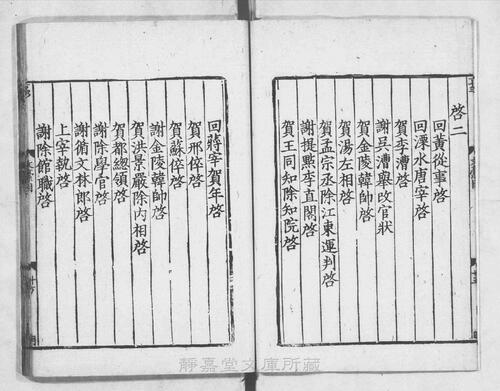 啓二
回黃從事啓
回溧水唐宰啓
賀李漕啓
謝吳漕舉改官狀
賀金陵韓帥啓
賀湯左相啓
賀孟宗丞除江東運判啓
謝提點李直閣啓
賀王同知除知院啓
回蔣宰賀年啓
賀邢倅啓
賀蘇倅啓
謝金陵韓帥啓
賀洪景嚴除內相啓
賀都緫領啓
謝除學官啓
謝循文林郎啓
上宰執啓
謝除館職啓
靜嘉堂文庫所藏